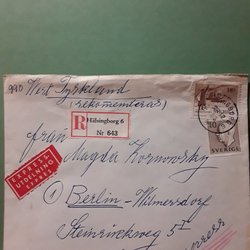 9910 West Tyskland
(rekomenderas)
R Hälsingborg 6
Nr 643
från
Magda Kornowsky
EXPRESS
UTDELNING
EXPRÈS
Berlin-Wilmersdorf
Steinrückweg 5 I
SVERIGE